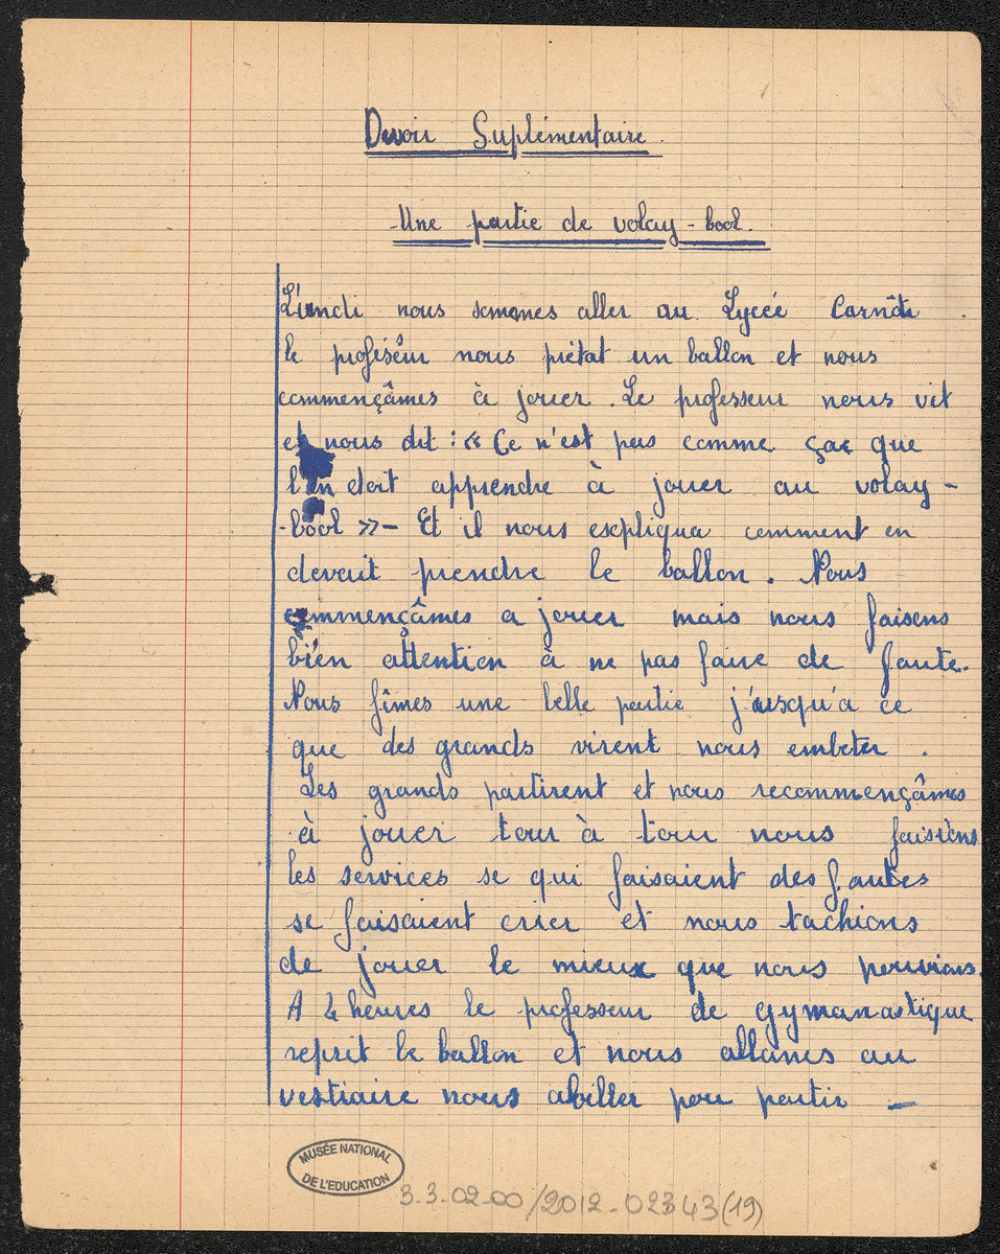 Devoir Suplémentaire.
Une partie de volay-bool.
L'undi nous sommes aller au Lycée Carnôt.
le proféseur nous prétat un ballon et nous
commençâmes à jouer. Le professeur nous vit
et nous dit : « Ce n'est pas comme ças que
l'on doit apprendre à jouer au volay-
-bool » - Et il nous escpliqua comment on
devait prendre le ballon. Nous
commençâmes a jouer mais nous faisons
bien attention à ne pas faire de faute.
Nous fîmes une belle partie j'usqu'a ce
que des grands virent nous embêter.
Les grands partirent et nous recommençâmes
à jouer tour à tour nous faisions
les services se qui faisaient des fautes
se faisaient crier et nous tachions
de jouer le mieux que nous pouvions.
A 4 heures le professeur de gymanastique
reprit le ballon et nous allames au
vestiaire nous abiller pour partir -
MUSÉE NATIONAL
DE L'EDUCATION
3.3.02.00/2012-02343(19)